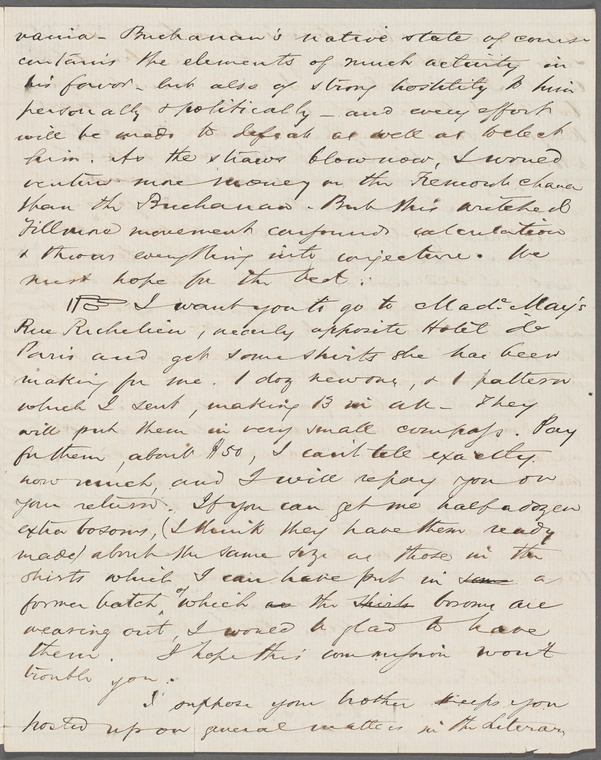 vania – Buchanan's native state of course
contains the elements of much activity in
his favor – but also of strong hostility to him
personally & politically – and every effort
will be made to defeat as well as to elect
him. As the straws blow now, I would
venture more money on the Fremont chance
than the Buchanan. But this wretched
Fillmore movement confounds calculation
& throws everything into conjecture. We
must hope for the best.
☞ I want you to go to Made. May's
Rue Richelieu, nearly opposite Hotel de
Paris and get some shirts she has been
making for me. 1 doz new ones, & 1 pattern
which I sent, making 13 in all – They
will put them in very small compass. Pay
for them, about $50, I can't tell exactly
how much, and I will repay you on
your return. If you can get me half a dozen
extra bosoms, (I think they have them ready
made) about the same size as those in the
shirts which I can have put in some a
former batch, of which as the shirts bosoms are
wearing out, I would be glad to have
them. I hope this commission won't
trouble you.
I suppose your brother keeps you
posted up on general matters in the Literary